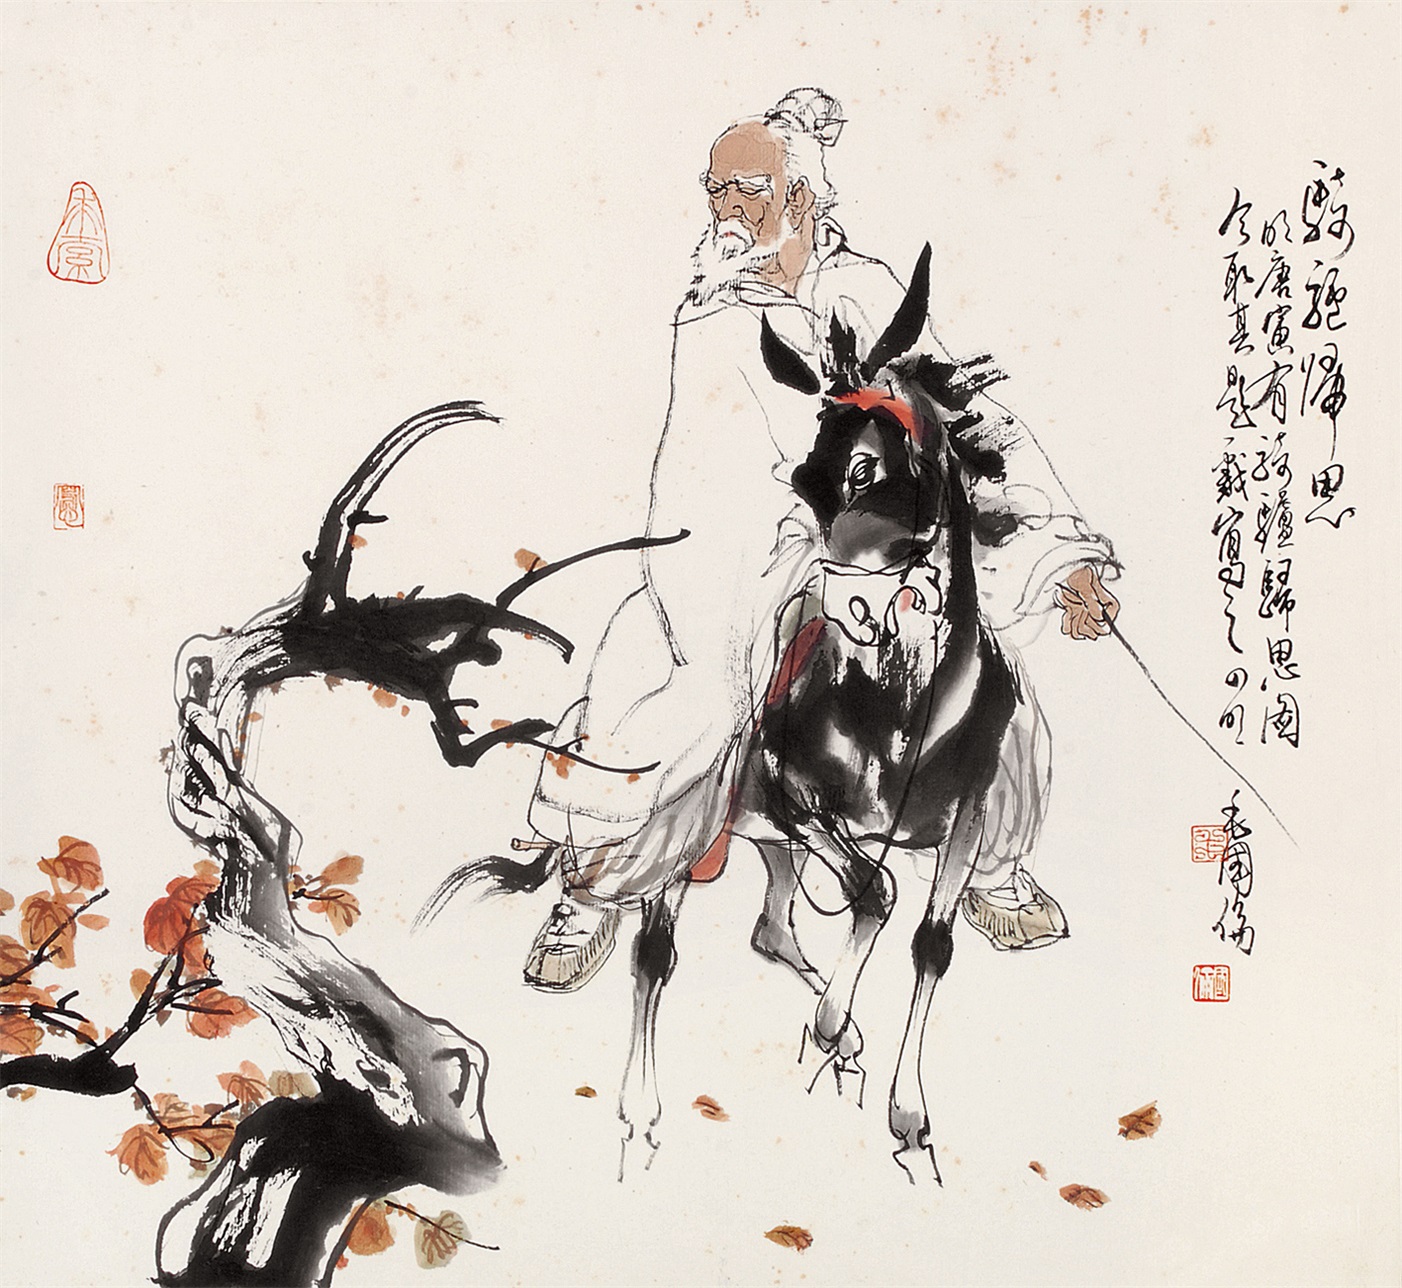 騎驢歸思
明唐寅有騎驢歸思圖
今取其題戲寫之四明
毛國倫